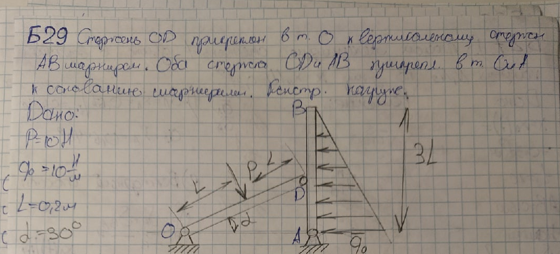 Б29 Стержень OD прикреплен в т. O к вертикальному стержню
AB шарниром. Оба стержня CD и AB прикрепл. в т. C и A
к основанию шарнирами. Констр. нагруж.
Дано:
P=10Н
q₀=10 Н/м
L=0,2м
α=30°
B
L
P
L
3L
D
α
O
A
q₀